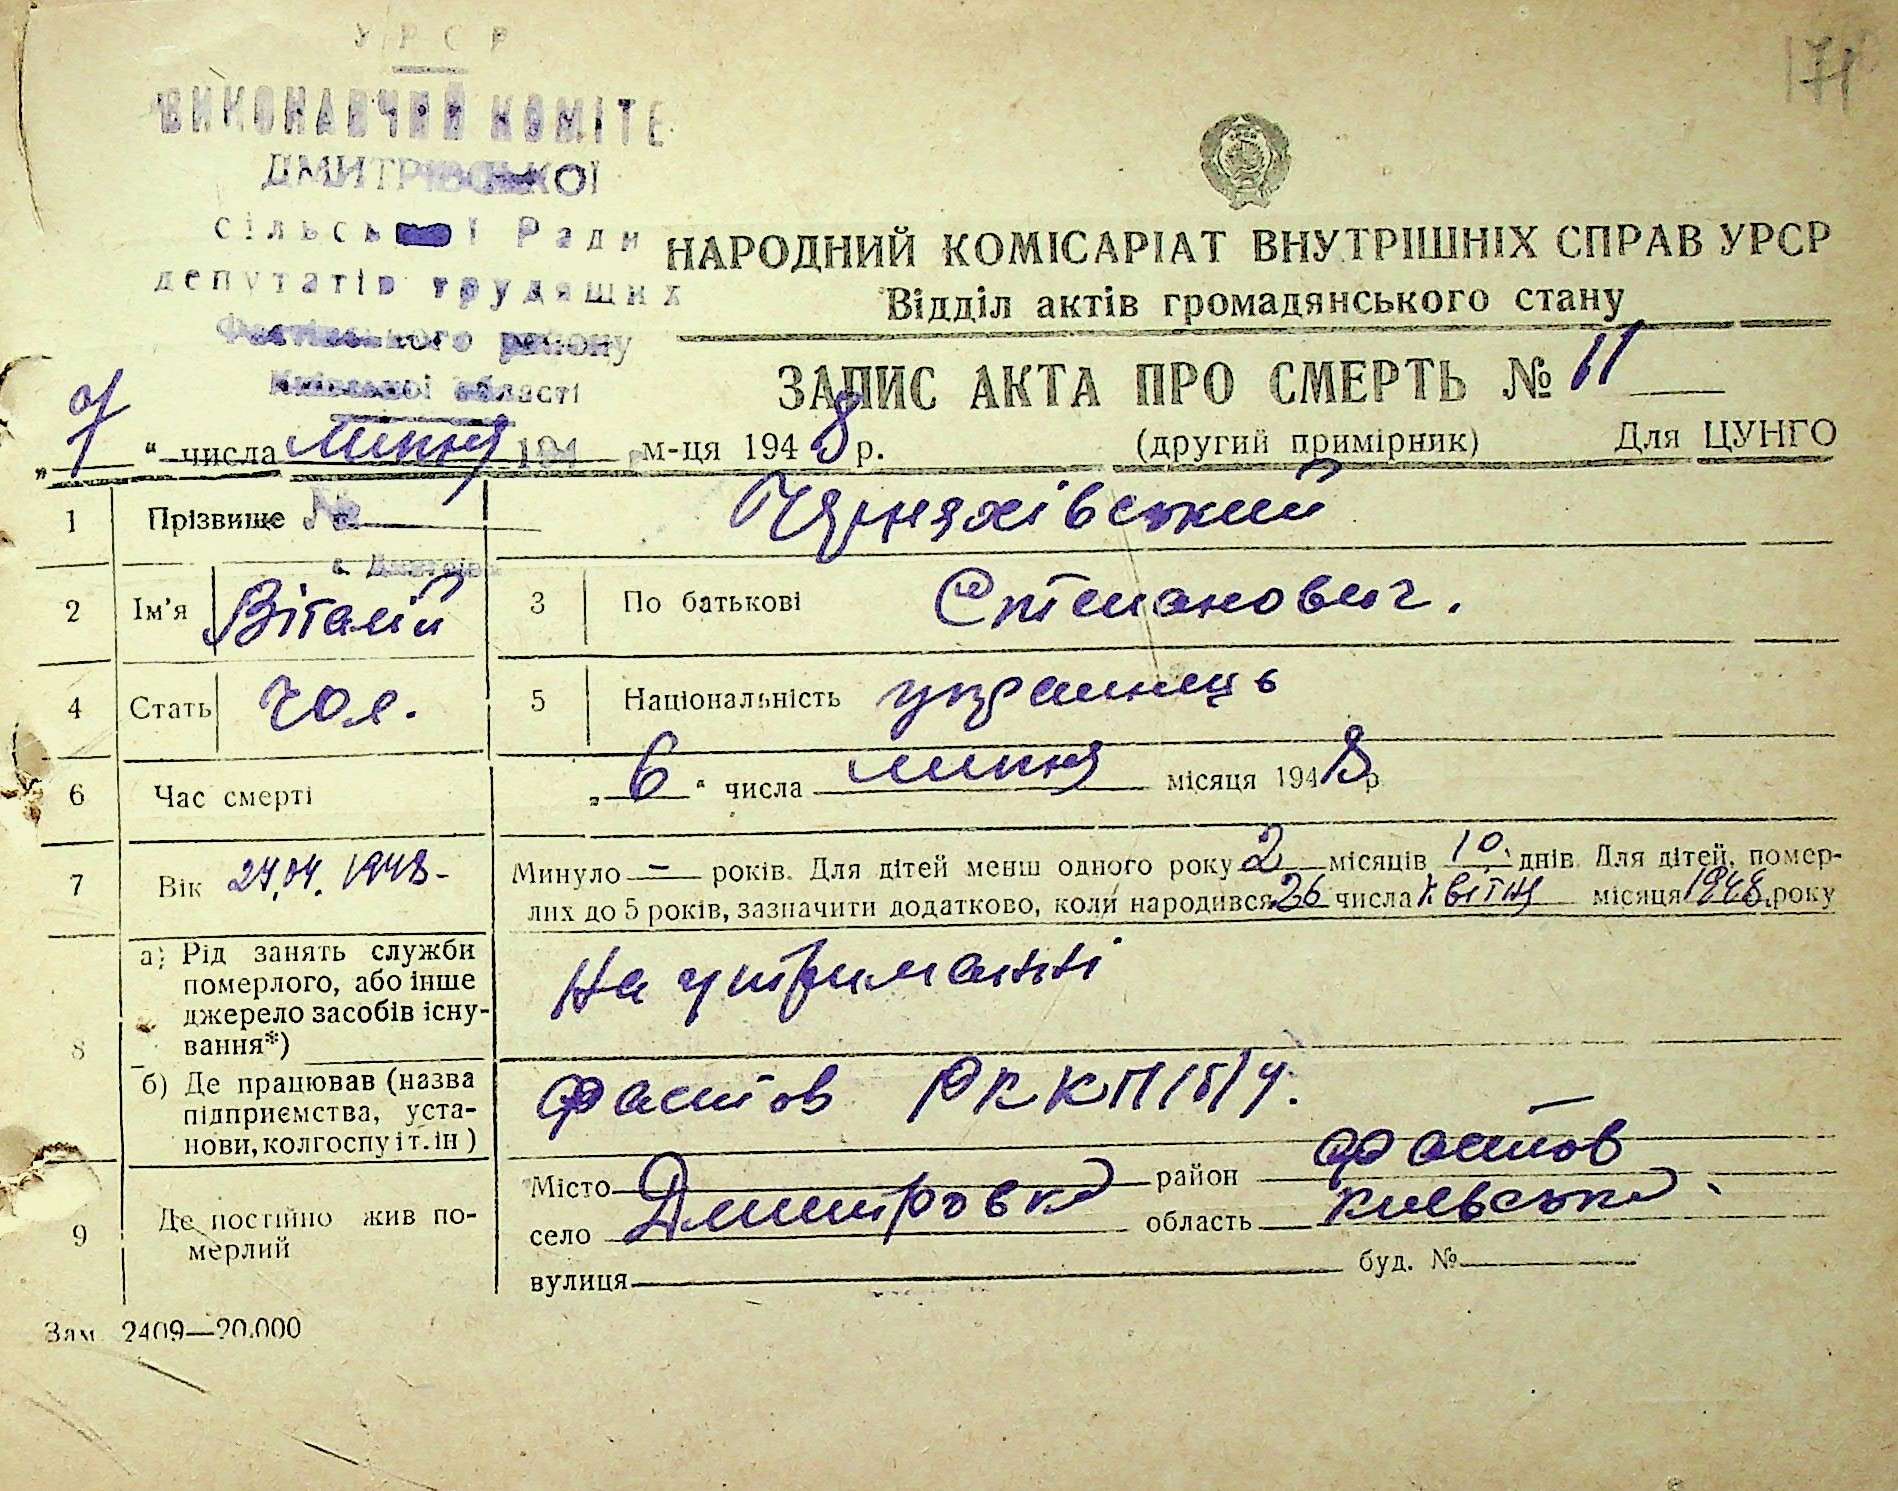 171
УРСР
ВИКОНАВЧИЙ КОМІТЕ
ДМИТРІВСЬКОЇ
сільської Ради
депутатів трудящих
Фастівського району
Київської області
НАРОДНИЙ КОМІСАРІАТ ВНУТРІШНІХ СПРАВ УРСР
Відділ актів громадянського стану
ЗАПИС АКТА ПРО СМЕРТЬ № 11
„ 7 “ числа липня 194 м-ця 1948 р. (другий примірник) Для ЦУНГО
1 Прізвище № Чярняхівський
с. Дмитрівка
2 Ім’я Віталій 3 По батькові Степанович.
4 Стать чол. 5 Національність украинець
6 Час смерті „ 6 “ числа липня місяця 1948 р
7 Вік 24.04.1948- Минуло — років. Для дітей менш одного року 2 місяців 10. днів. Для дітей, помер-
лих до 5 років, зазначити додатково, коли народився 26 числа квітня місяця 1948. року
8 а) Рід занять служби
померлого, або інше
джерело засобів існу-
вання*)
На утриманні
б) Де працював (назва
підприємства, уста-
нови, колгоспу і т. ін )
Фастов РК КП/б/У.
9 Де постійно жив по-
мерлий
Місто район Фастов
село Дмитровка область киевська.
вулиця буд. №
Зам. 2409—20.000